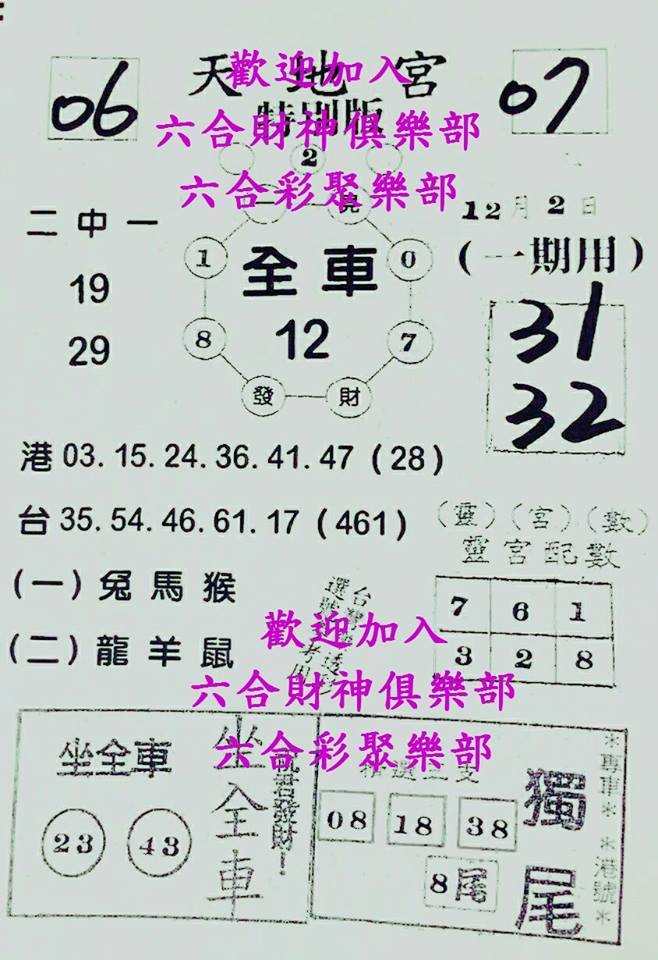 06
天地宮
07
歡迎加入
特別版
六合財神俱樂部
2
六合彩聚樂部
12月2日
二中一
(一期用)
1
0
全車
19
31
8
12
7
29
32
發
財
港 03. 15. 24. 36. 41. 47 (28)
台 35. 54. 46. 61. 17 (461)
(靈)(宮)(數)
靈宮配數
(一) 兔馬猴
7 6 1
(二) 龍羊鼠
3 2 8
歡迎加入
六合財神俱樂部
六合彩聚樂部
坐全車
23 43
坐全車
祝君發財!
08 18 38
8尾
獨尾
*專車*
*港號*